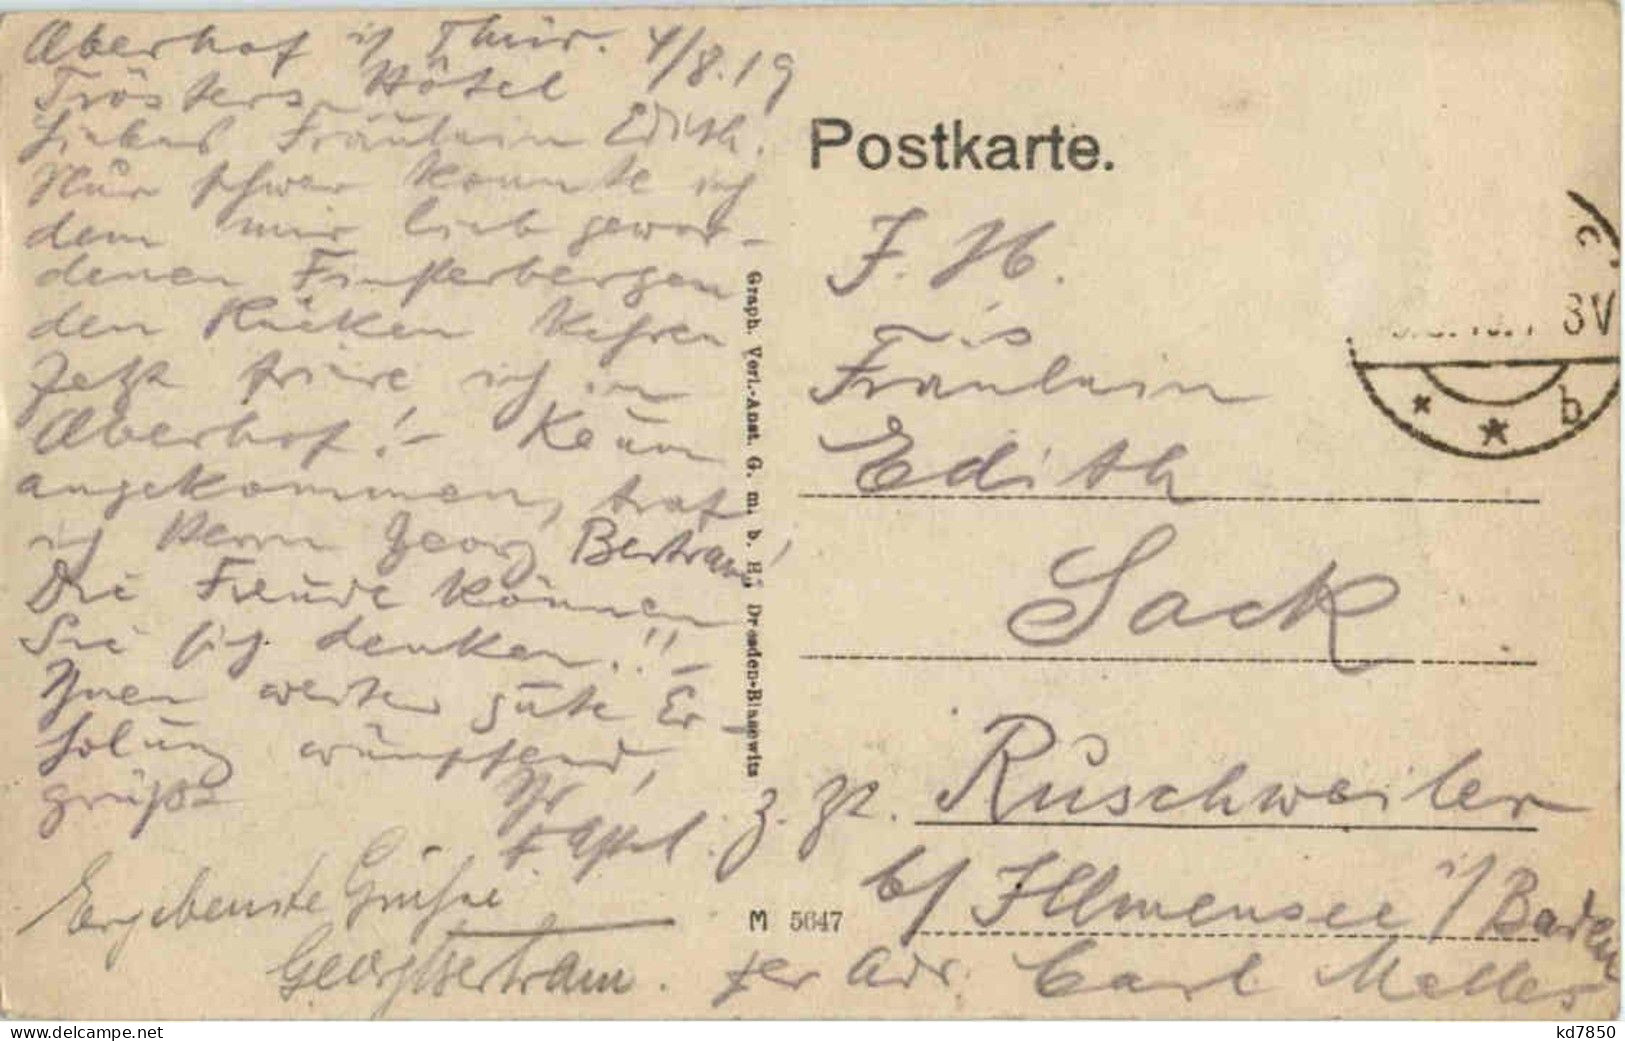 Oberhof i/ Thür. 4/8.19
Trösters Hôtel
Liebes Fräulein Edith!
Nur schwer konnte ich
dem mir lieb gewor-
denen Finsterbergen
den Rücken kehren
Jetzt friere ich in
Oberhof!- Kaum
angekommen, traf
ich Herrn Georg Bertram!
Die Freude können
Sie sich denken.!! -
Ihnen weiter gute Er-
holung wünschend,
grüßt
Ihr
Ergebenste Grüße
Georg Bertram.
Graph. Verl.-Anst. G. m. b. H., Dresden-Blasewitz
M 5647
Postkarte.
8V
b
J. H.
Fräulein
Edith
Sack
z. Zt. Ruschweiler
b/ Illmensee i/ Baden
per Adr. Carl Metler
kd7850